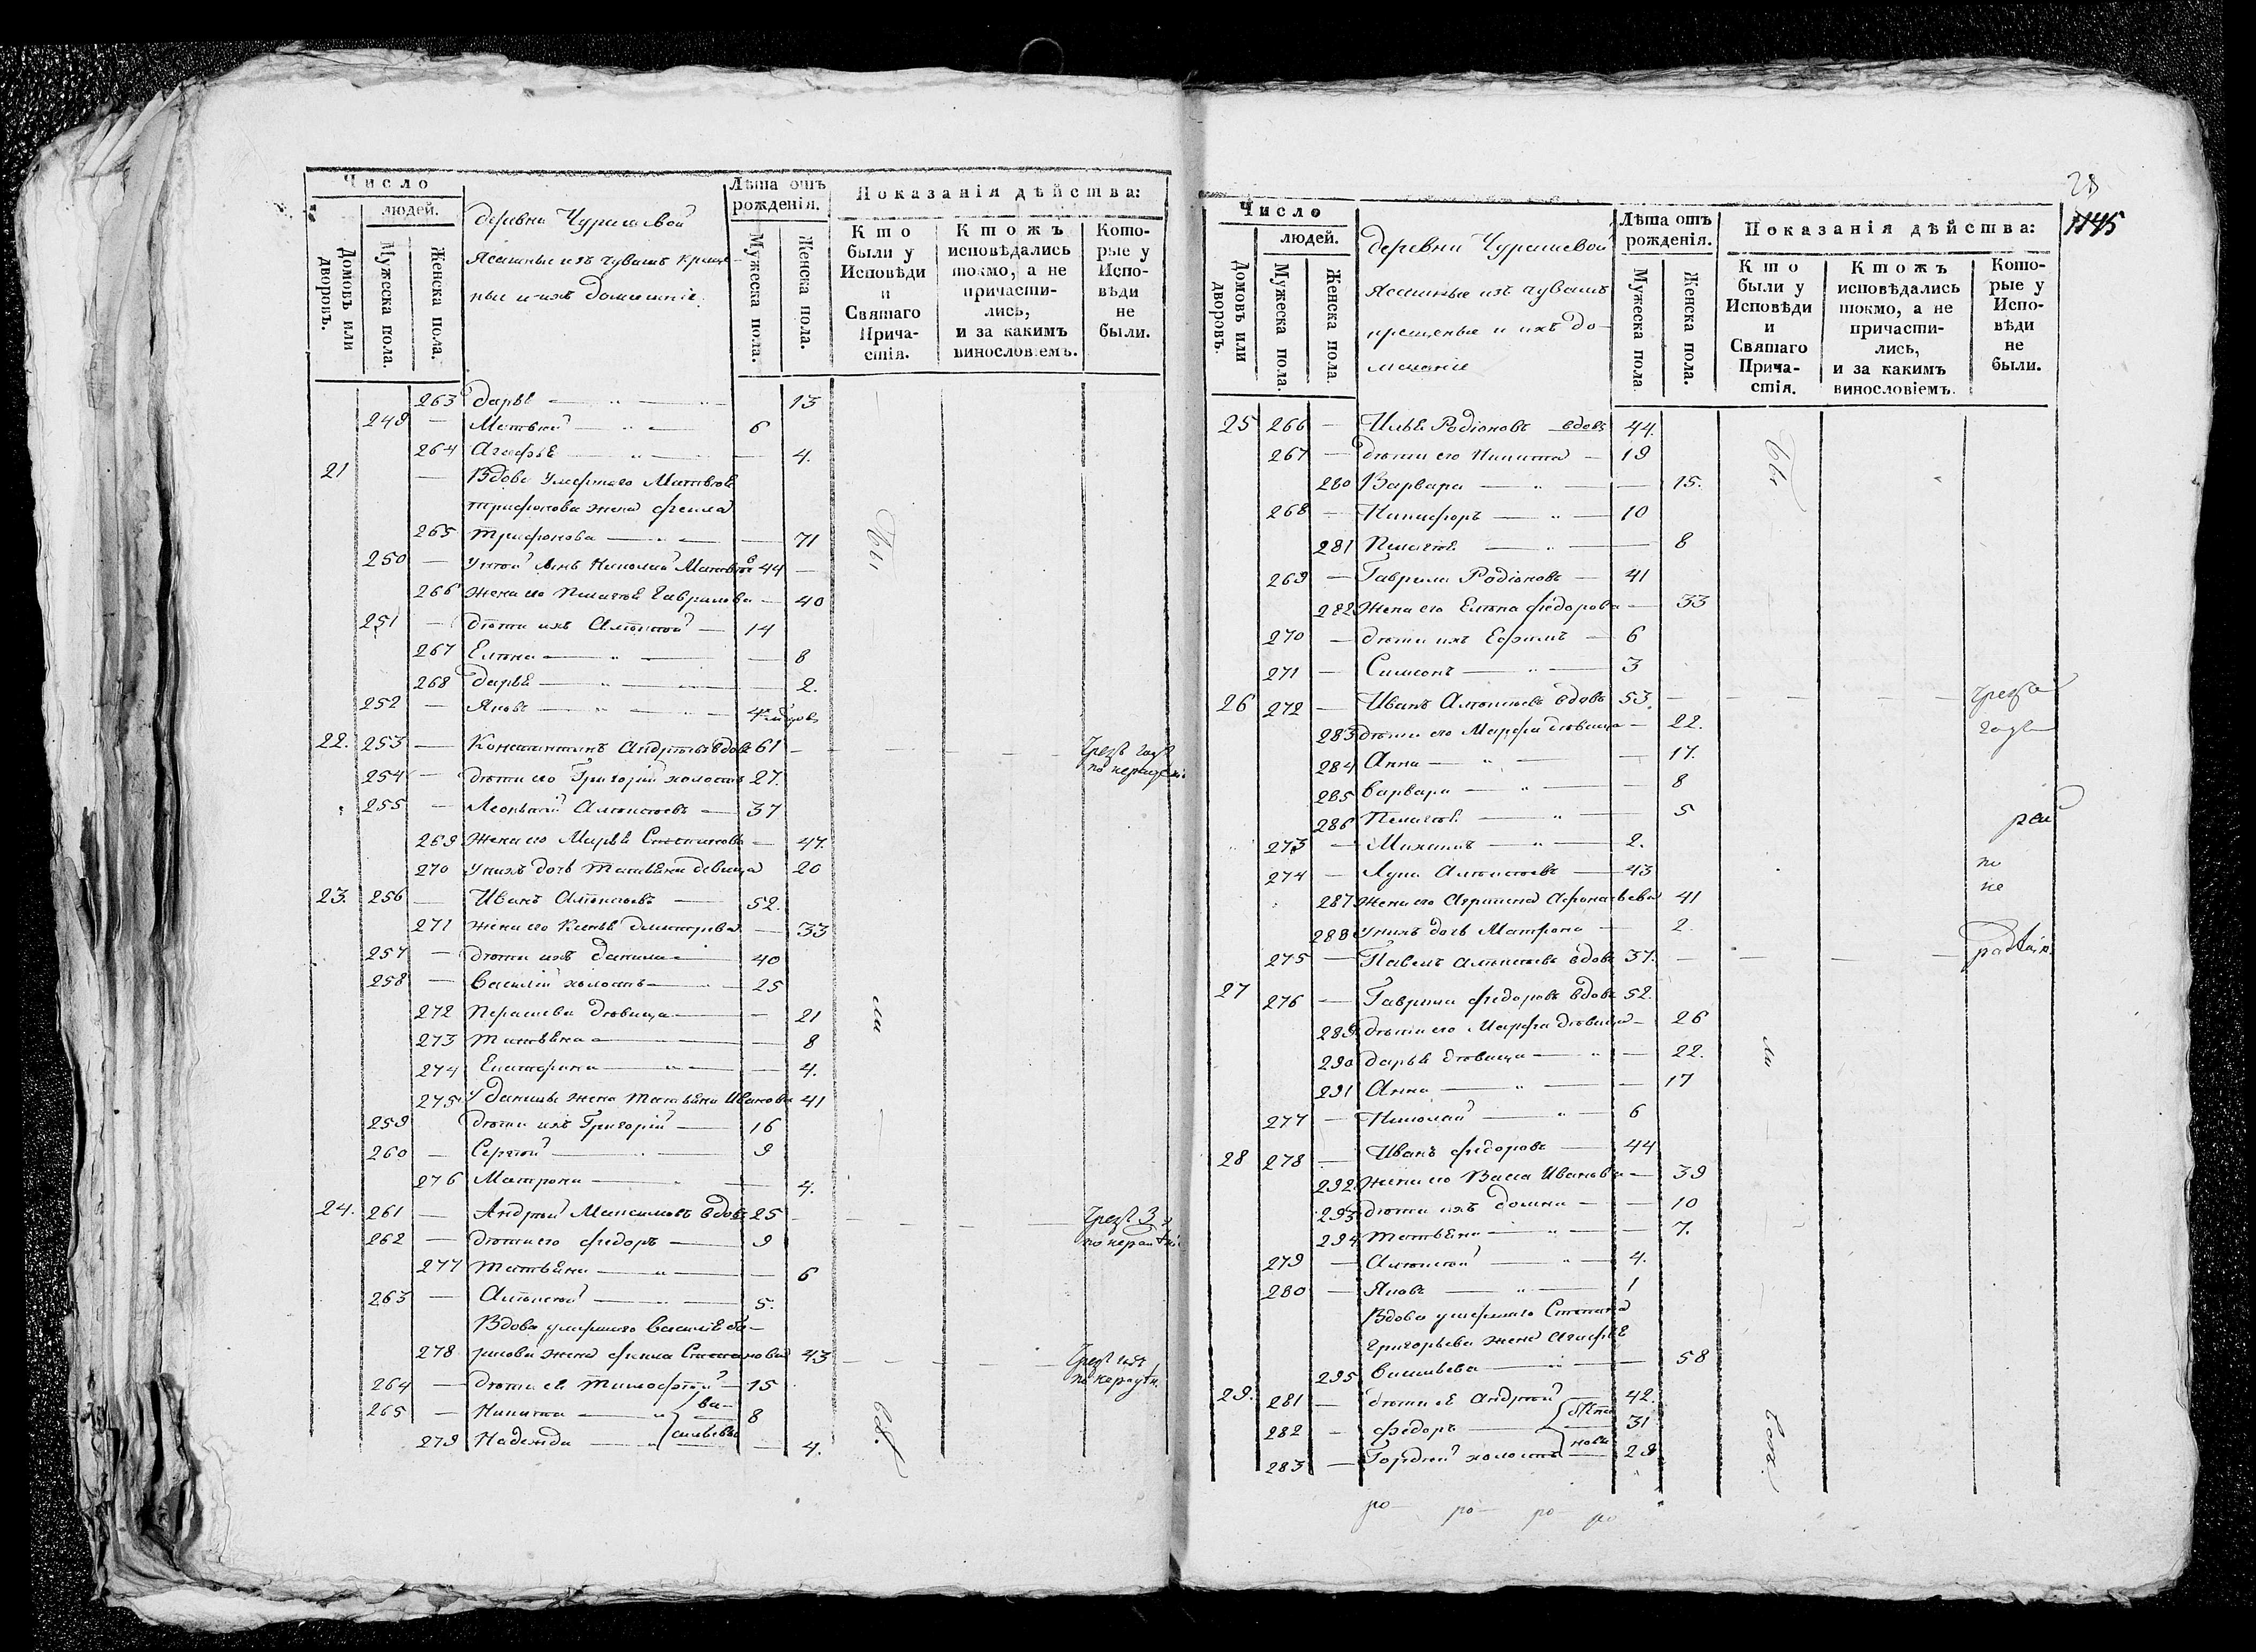 Число
людей.
Домовъ или дворовъ.
Мужеска пола.
Женска пола.
деревни Чурашевой
Ясашные изъ чувашъ креще-
ные и ихъ домашніе.
Лѣта отъ рожденія.
Мужеска пола.
Женска пола.
Показанія дѣйства:
Кто были у Исповѣди и Святаго Причастія.
Ктожъ исповѣдались токмо, а не причастились, и за какимъ винословіемъ.
Которые у Исповѣди не были.
263 Дарья 13
249 Матвей 6
264 Агафья 4.
21 Вдова умершаго Матвея
Трифонова жена Фекла
265 Трифонова 71
250 У ней сынъ Николай Матвѣевъ 44
266 Жена его Пелагея Гаврилова 40
251 Дѣти ихъ Алексѣй 14
267 Елена 8
268 Дарья 2.
252 Яковъ 4 мѣсяцовъ
22. 253 Константинъ Андреевъ вдовъ 61 чрезъ годъ
254 Дѣти его Григорій холостъ 27. по нерадѣнію
255 Леонтій Алексѣевъ 37
269 Жена его Марья Степанова 47.
270 У нихъ дочь Татьяна девица 20
23. 256 Иванъ Алексѣевъ 52.
271 Жена его Ксенья Дмитріева 33
257 Дѣти ихъ Данила 40
258 Василій холостъ 25
272 Парасева дѣвица 21
273 Татьяна 8
274 Екатерина 4.
275 У Данилы жена Татьяна Иванова 41
259 Дѣти ихъ Григорій 16
260 Сергѣй 9
276 Матрона 4.
24. 261 Андрей Максимовъ вдовъ 25 чрезъ 3
262 Дѣти его Федоръ 9 по нерадѣнію
277 Татьяна 6
263 Алексѣй 5.
Вдова умершаго Василья
278 жена Фекла Степанова 43
264 Дѣти ея Тимофѣй 15
265 Никита 8
279 Надежда Васильевы 4.
Бы
ли
вси.
28
1145
Число
людей.
Домовъ или дворовъ.
Мужеска пола.
Женска пола.
деревни Чурашевой
Ясашные изъ чувашъ
крещеные и ихъ до-
машніе
Лѣта отъ рожденія.
Мужеска пола
Женска пола.
Показанія дѣйства:
Кто были у Исповѣди и Святаго Причастія.
Ктожъ исповѣдались токмо, а не причастились, и за какимъ винословіемъ.
Которые у Исповѣди не были.
25 266 Илья Родіоновъ вдовъ 44.
267 Дѣти его Никита 19
280 Варвара 15.
268 Никифоръ 10
281 Пелагея 8
269 Гаврила Родіоновъ 41
282 Жена его Елена Федорова 33
270 Дѣти ихъ Ефимъ 6
271 Симеонъ 3
26 272 Иванъ Алексѣевъ вдовъ 53. чрезъ
283 Дѣти его Марфа дѣвица 22. годъ
284 Анна 17.
285 Варвара 8
286 Пелагея 5
273 Михаилъ 2.
274 Лука Алексѣевъ 43 по
287 Жена его Агрипина Афонасьева 41 не
288 У нихъ дочь Матрона 2
275 Павелъ Алексѣевъ вдовъ 37. радѣнію
27 276 Гаврила Федоровъ вдовъ 52.
289 Дѣти его Марфа дѣвица 26
290 Дарья дѣвица 22.
291 Анна 17
277 Николай 6
28 278 Иванъ Федоровъ 44
292 Жена его Васса Иванова 39
293 Дѣти ихъ Домна 10
294 Татьяна 7.
279 Алексѣй 4.
280 Яковъ 1
Вдова умершаго Степана
Григорьева жена Агафья
295 Васильева 58
29. 281 Дѣти ея Андрей 42.
282 Федоръ Степановы 31
283 Гордей холостъ 29
Бы
ли
вси.
ро ро ро ро